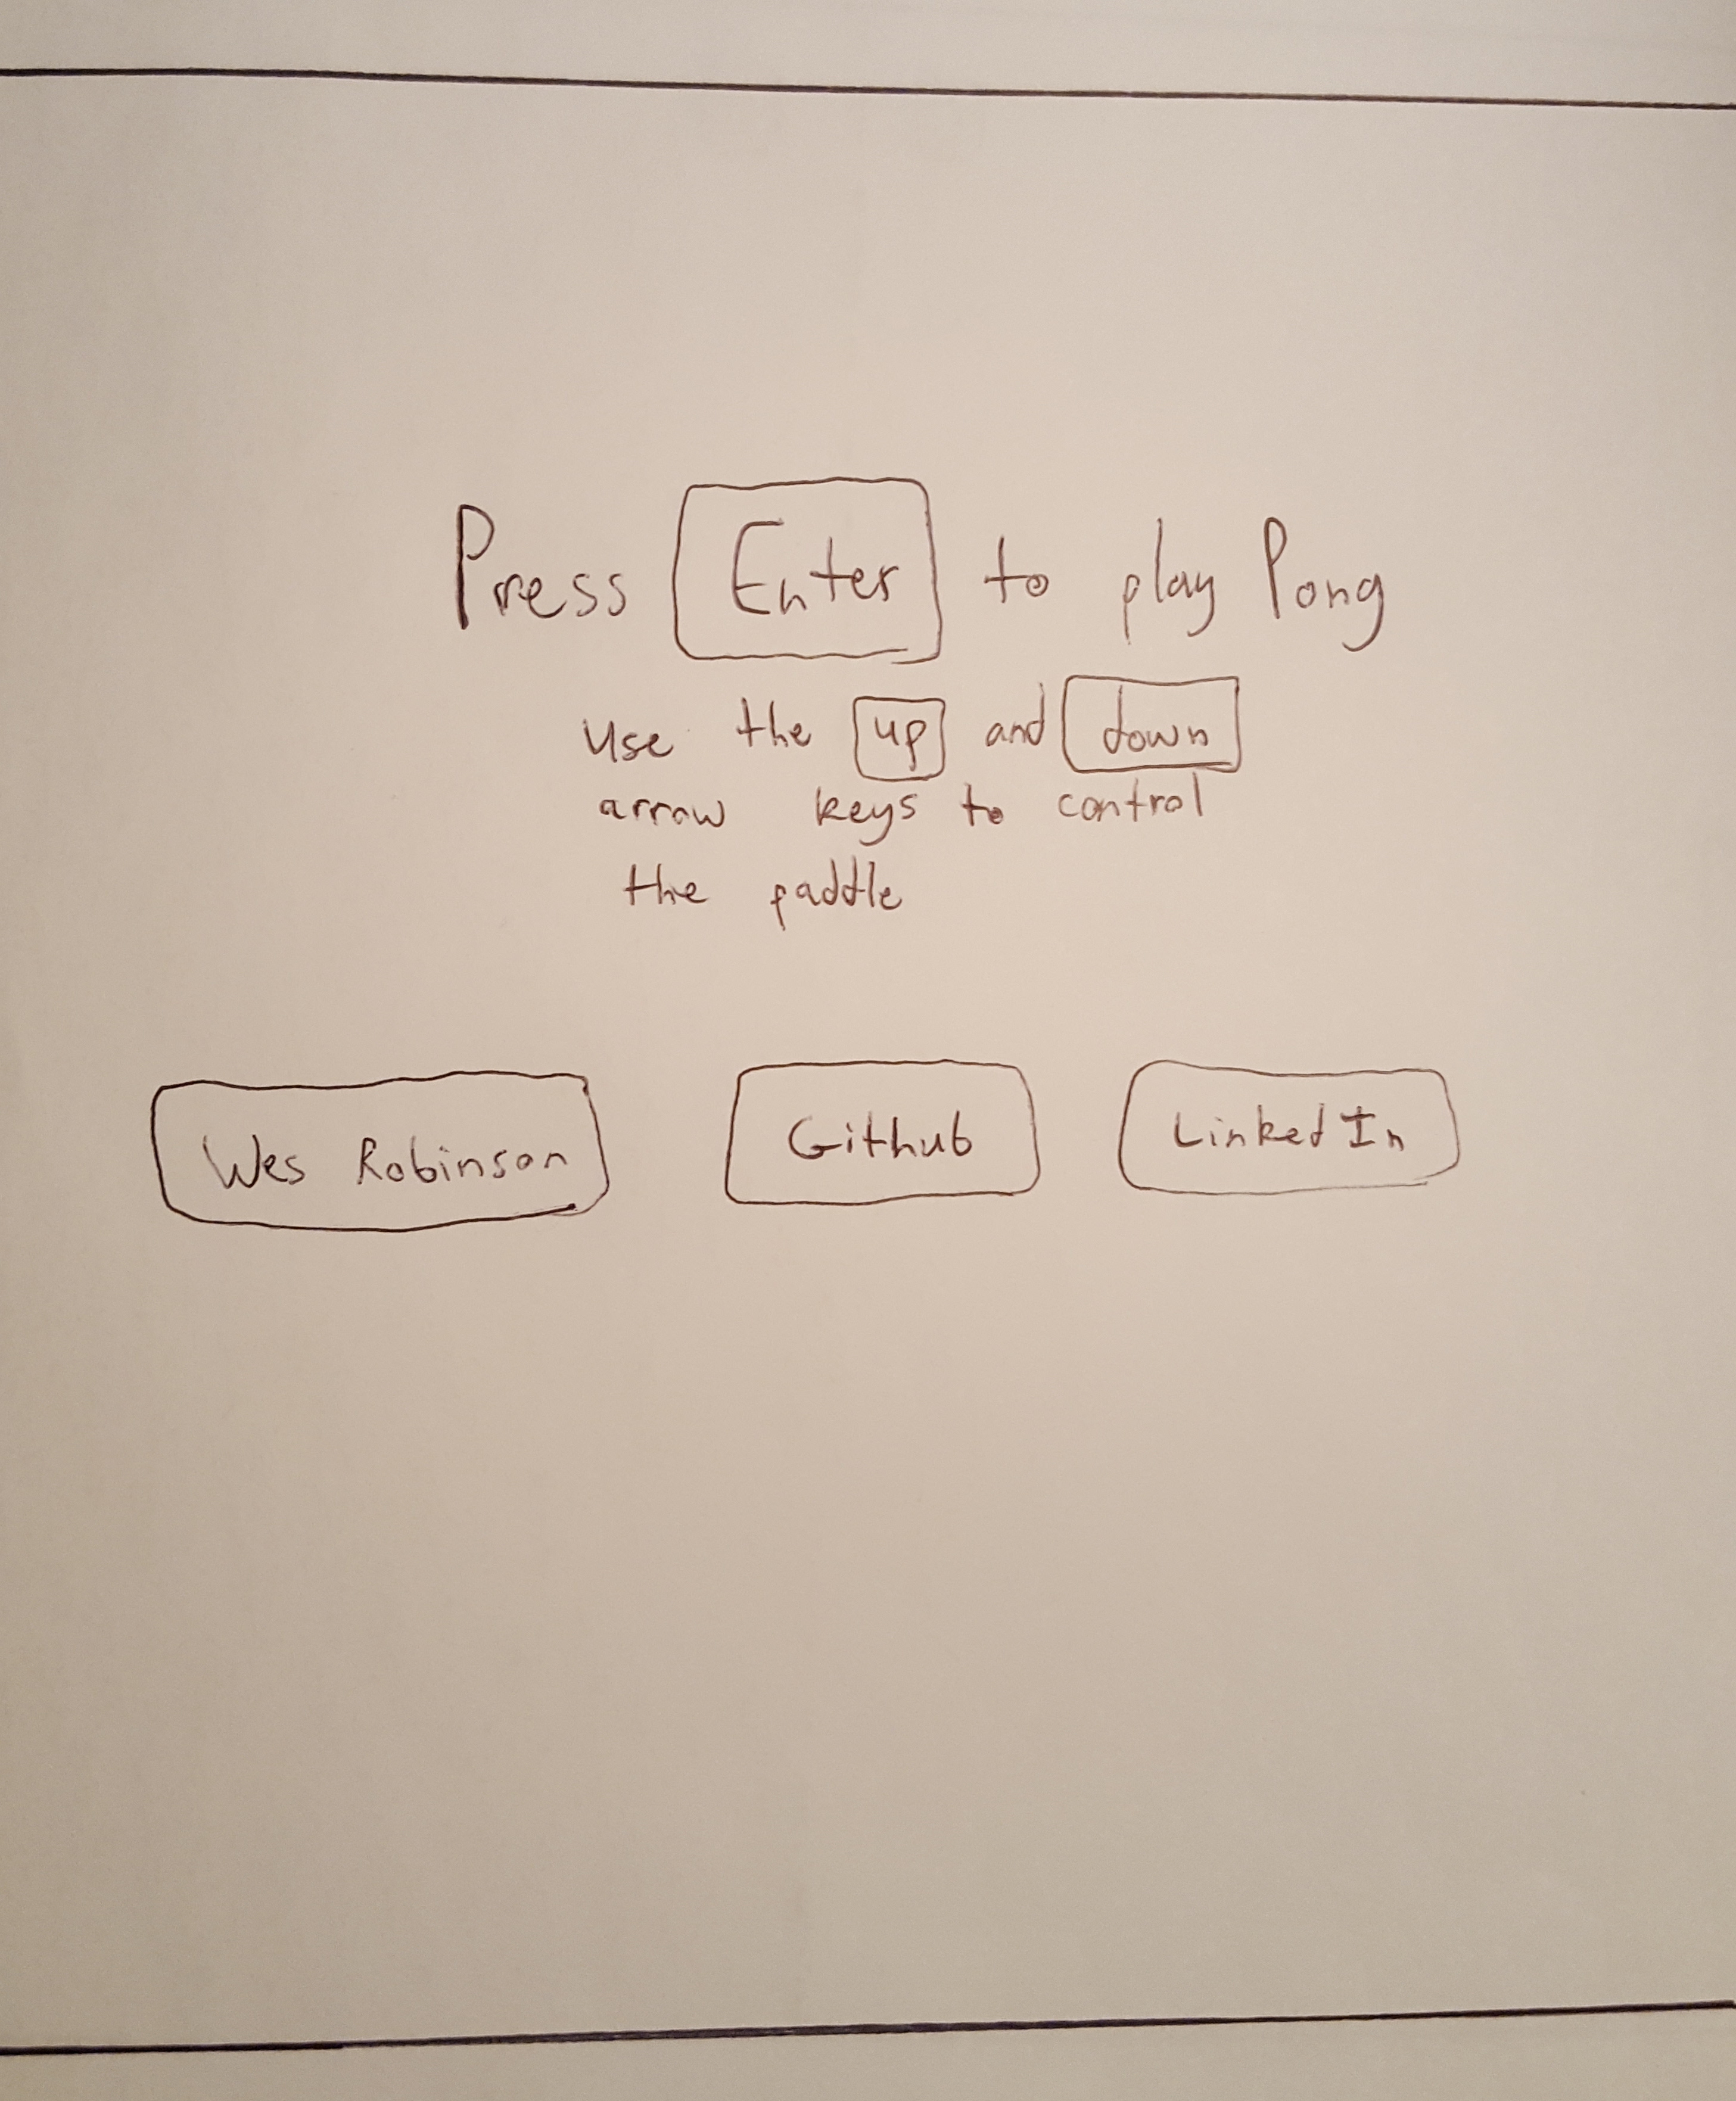 Press Enter to play Pong
Use the up and down
arrow keys to control
the paddle
Wes Robinson Github LinkedIn